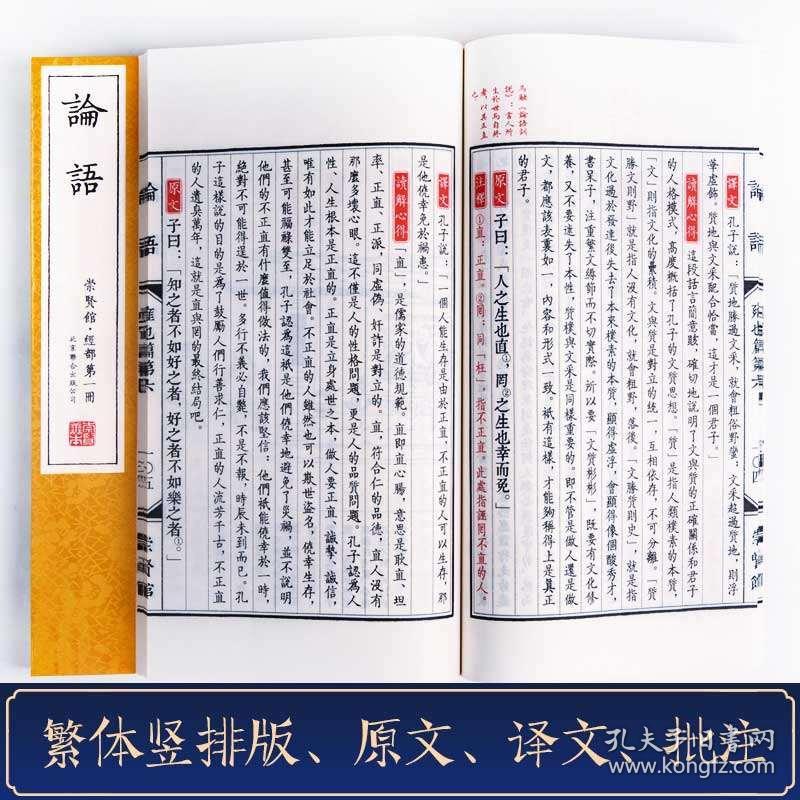 論語
崇賢館·經部第一冊
北京聯合出版公司
馬融《論語訓
說》：言人所
生於世而自終
者，以其正直
也。
譯文 孔子說：「質地勝過文采，就會粗俗野蠻；文采超過質地，則浮
華虛飾。質地與文采配合恰當，這才是一個君子。」
讀解心得 這段話言簡意賅，確切地說明了文與質的正確關係和君子
的人格模式，高度概括了孔子的文質思想。「質」是指人類樸素的本質，
「文」則指文化的累積。文與質是對立的統一，互相依存，不可分離。「質
勝文則野」就是指人沒有文化，就會粗野、落後。「文勝質則史」，就是指
文化過於發達後失去了本來樸素的本質，顯得虛浮，會顯得像個酸秀才，
書呆子，注重繁文縟節而不切實際。所以要「文質彬彬」，既要有文化修
養，又不要迷失了本性，質樸與文采是同樣重要的。即不管是做人還是做
文，都應該表裏如一，內容和形式一致。祇有這樣，才能夠稱得上是真正
的君子。
原文 子曰：「人之生也直①，罔②之生也幸而免。」
注釋 ①直：正直。②罔：同「枉」，指不正直。此處指誣罔不直的人。
譯文 孔子說：「一個人能生存是由於正直，不正直的人可以生存，那
是他僥幸免於禍患。」
讀解心得 「直」，是儒家的道德規範。直即直心腸，意思是耿直、坦
率、正直、正派，同虛偽、奸詐是對立的。直，符合仁的品德，直人沒有
那麼多壞心眼。這不僅是人的性格問題，更是人的品質問題。孔子認為人
性、人生根本是正直的。正直是立身處世之本，做人要正直、誠摯、誠信，
唯有如此才能立足於社會。不正直的人雖然也可以欺世盜名，僥幸生存，
甚至可能福祿雙至，孔子認為這祇是他們僥幸地避免了災禍，並不說明
他們的不正直有什麼值得做法的，我們應該堅信：他們祇能僥幸於一時，
絕對不可能得逞於一世。多行不義必自斃，不是不報，時辰未到而已。孔
子這樣說的目的是為了鼓勵人們行善求仁，正直的人流芳千古，不正直
的人遺臭萬年，這就是直與罔的最終結局吧。
原文 子曰：「知之者不如好之者，好之者不如樂之者①。」
論語
雍也篇第六
一〇五
崇賢館
繁体竖排版、原文、译文、批注
孔夫子旧书网
www.kongfz.com